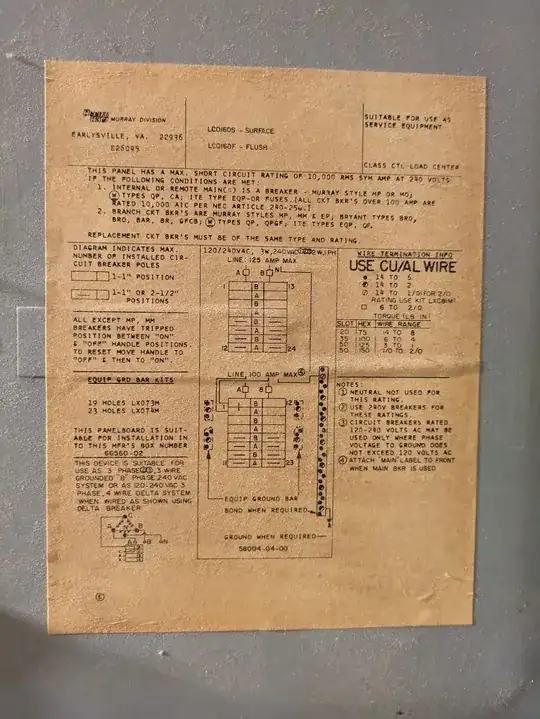 MURRAY DIVISION
EARLYSVILLE, VA. 22936
E26095
LC0160S - SURFACE
LC0160F - FLUSH
SUITABLE FOR USE AS
SERVICE EQUIPMENT
CLASS CTL LOAD CENTER
THIS PANEL HAS A MAX. SHORT CIRCUIT RATING OF 10,000 RMS SYM AMP AT 240 VOLTS
IF THE FOLLOWING CONDITIONS ARE MET:
1. INTERNAL OR REMOTE MAIN(S) IS A BREAKER - MURRAY STYLE MP OR MD,
TYPES QP, CA; ITE TYPE EQP-OR FUSES. [ALL CKT BKR'S OVER 100 AMP ARE
RATED 10,000 AIC PER NEC ARTICLE 240-
2. BRANCH CKT BKR'S ARE MURRAY STYLES MP, MH & EP; BRYANT TYPES BRD,
BRO, BAR, BR, GFCB; W TYPES QP, QPGF; ITE TYPES EQP, QF.
REPLACEMENT CKT BKR'S MUST BE OF THE SAME TYPE AND RATING.
DIAGRAM INDICATES MAX.
NUMBER OF INSTALLED CIR-
CUIT BREAKER POLES
1-1" POSITION
1-1" OR 2-1/2"
POSITIONS
ALL EXCEPT MP, MM
BREAKERS HAVE TRIPPED
POSITION BETWEEN "ON"
& "OFF" HANDLE POSITIONS.
TO RESET MOVE HANDLE TO
"OFF" & THEN TO "ON".
EQUIP GRD BAR KITS
19 HOLES LX073M
23 HOLES LX074M
THIS PANELBOARD IS SUIT-
ABLE FOR INSTALLATION IN
TO THIS MFR'S BOX NUMBER
66560-02
THIS DEVICE IS SUITABLE FOR
USE AS 3 PHASE, 3 WIRE
GROUNDED "B" PHASE 240 VAC
SYSTEM OR AS 120-240 VAC 3
PHASE, 4 WIRE DELTA SYSTEM
WHEN WIRED AS SHOWN USING
DELTA BREAKER
C
A
B
A
B
N
120/240VAC, 3W, 240VAC 2W, 1PH
LINE: 125 AMP MAX
A
B
N
1
B
13
A
B
A
B
A
B
A
12
A
24
LINE, 100 AMP MAX ④
A
B
1
B
12
A
B
A
B
A
B
A
11
A
23
EQUIP GROUND BAR
BOND WHEN REQUIRED
GROUND WHEN REQUIRED
58004-04-00
WIRE TERMINATION INFO
USE CU/AL WIRE
14 TO 6
14 TO 2
14 TO 1/0 (FOR 2/0
RATING USE KIT
6 TO 2/0
TORQUE (LB. IN.)
SLOT HEX WIRE RANGE
20 75 14 TO 8
35 100 6 TO 4
50 125 3 TO 1
50 150 1/0 TO 2/0
NOTES:
① NEUTRAL NOT USED FOR
THIS RATING.
② USE 240V BREAKERS FOR
THESE RATINGS.
③ CIRCUIT BREAKERS RATED
120-240 VOLTS AC MAY BE
USED ONLY WHERE PHASE
VOLTAGE TO GROUND DOES
NOT EXCEED 120 VOLTS AC
④ ATTACH "MAIN" LABEL TO FRONT
WHEN MAIN BKR IS USED